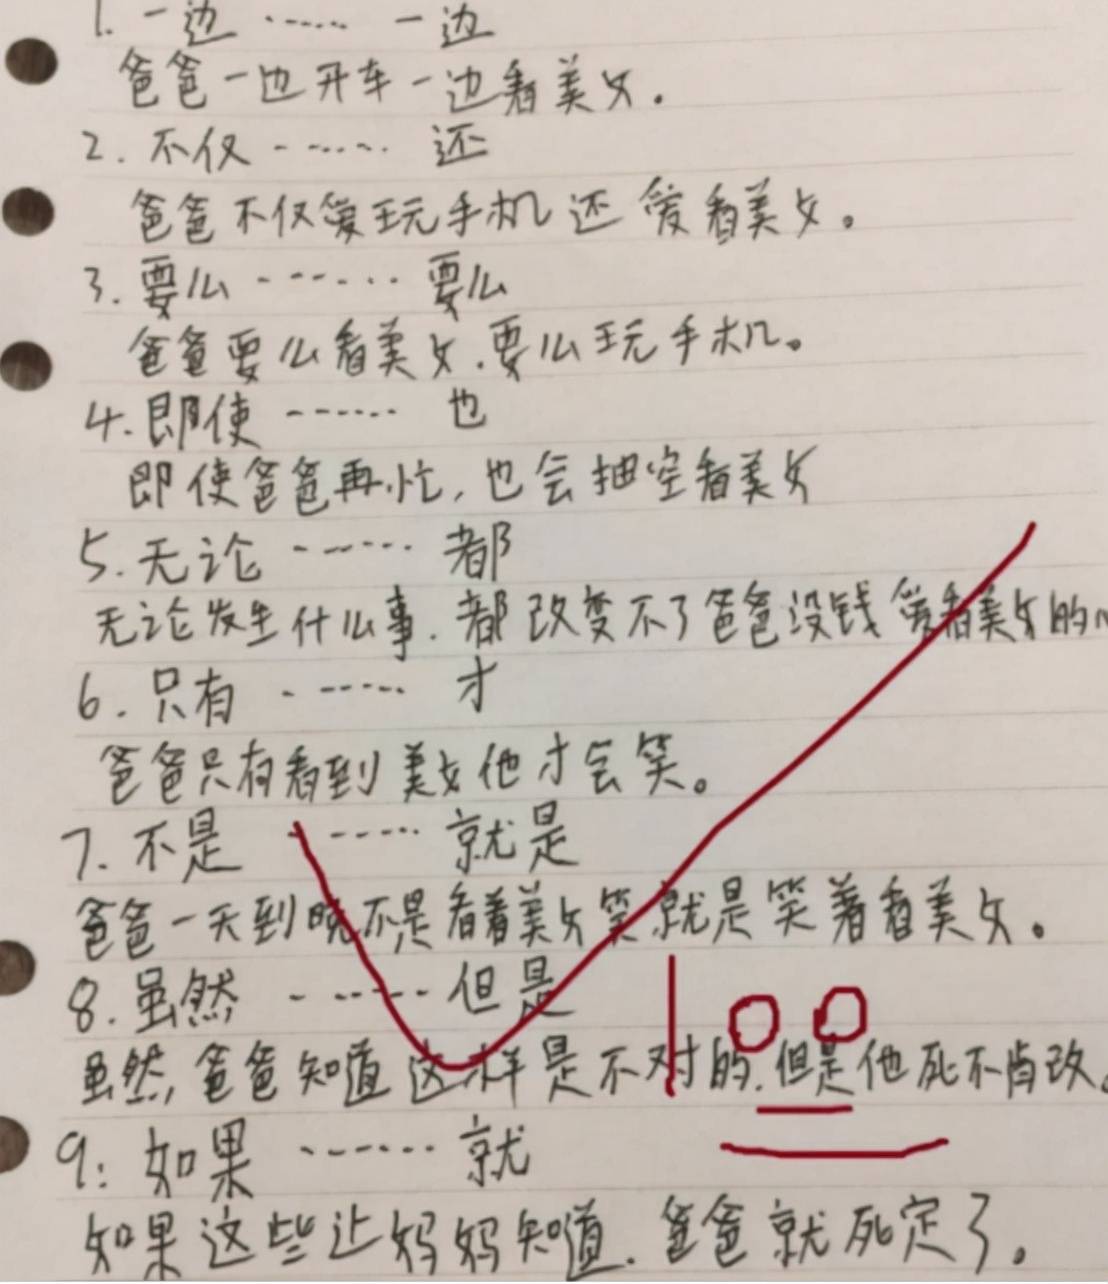 1. 一边 ⋯⋯ 一边
爸爸一边开车一边看美女。
2. 不仅 ⋯⋯ 还
爸爸不仅爱玩手机还爱看美女。
3. 要么 ⋯⋯ 要么
爸爸要么看美女,要么玩手机。
4. 即使 ⋯⋯ 也
即使爸爸再忙,也会抽空看美女
5. 无论 ⋯⋯ 都
无论发生什么事,都改变不了爸爸没钱爱看美女的
6. 只有 ⋯⋯ 才
爸爸只有看到美女他才会笑。
7. 不是 ⋯⋯ 就是
爸爸一天到晚不是看着美女笑就是笑着看美女。
8. 虽然 ⋯⋯ 但是
100
虽然,爸爸知道这样是不对的,但是他死不肯改。
9: 如果 ⋯⋯ 就
如果这些让妈妈知道,爸爸就死定了。